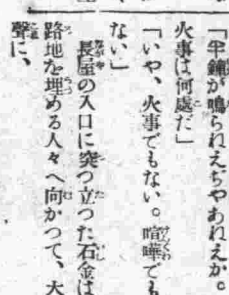 「半鐘が鳴られえぢやあれえか。
火事は何處だ」
「いや、火事でもない。喧嘩でも
ない」
長屋の入口に突つ立つた石金は
路地を埋める人々へ向かつて、大
聲に、